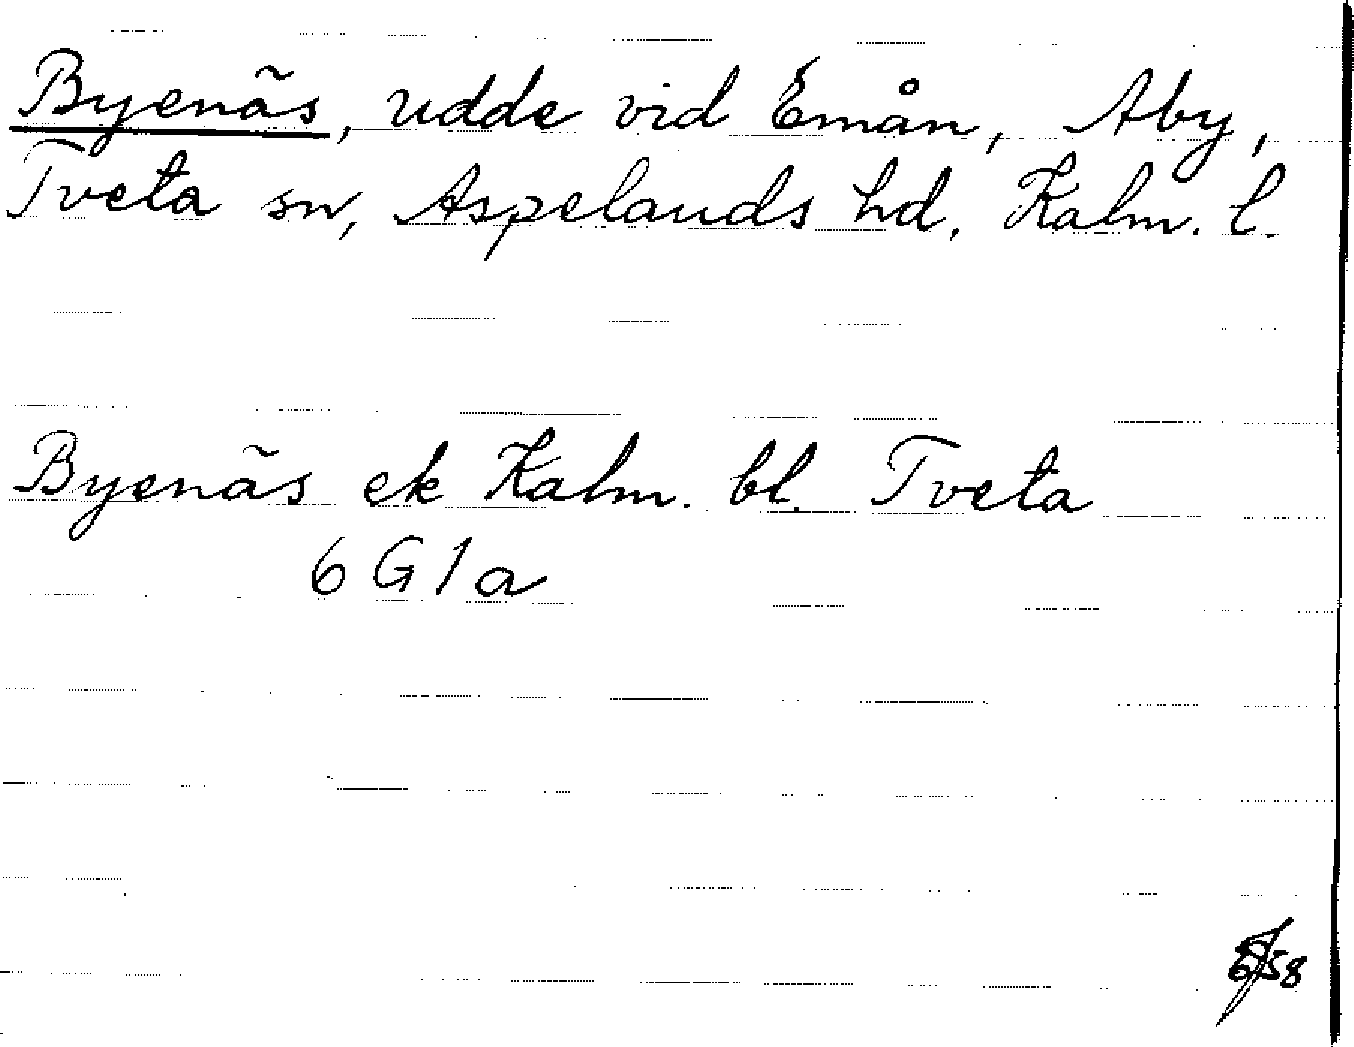 Byenäs, udde vid Emån, Aby,
Tveta sn, Aspelands hd, Kalm. l.
Byenäs ek Kalm. bl. Tveta
6 G 1 a